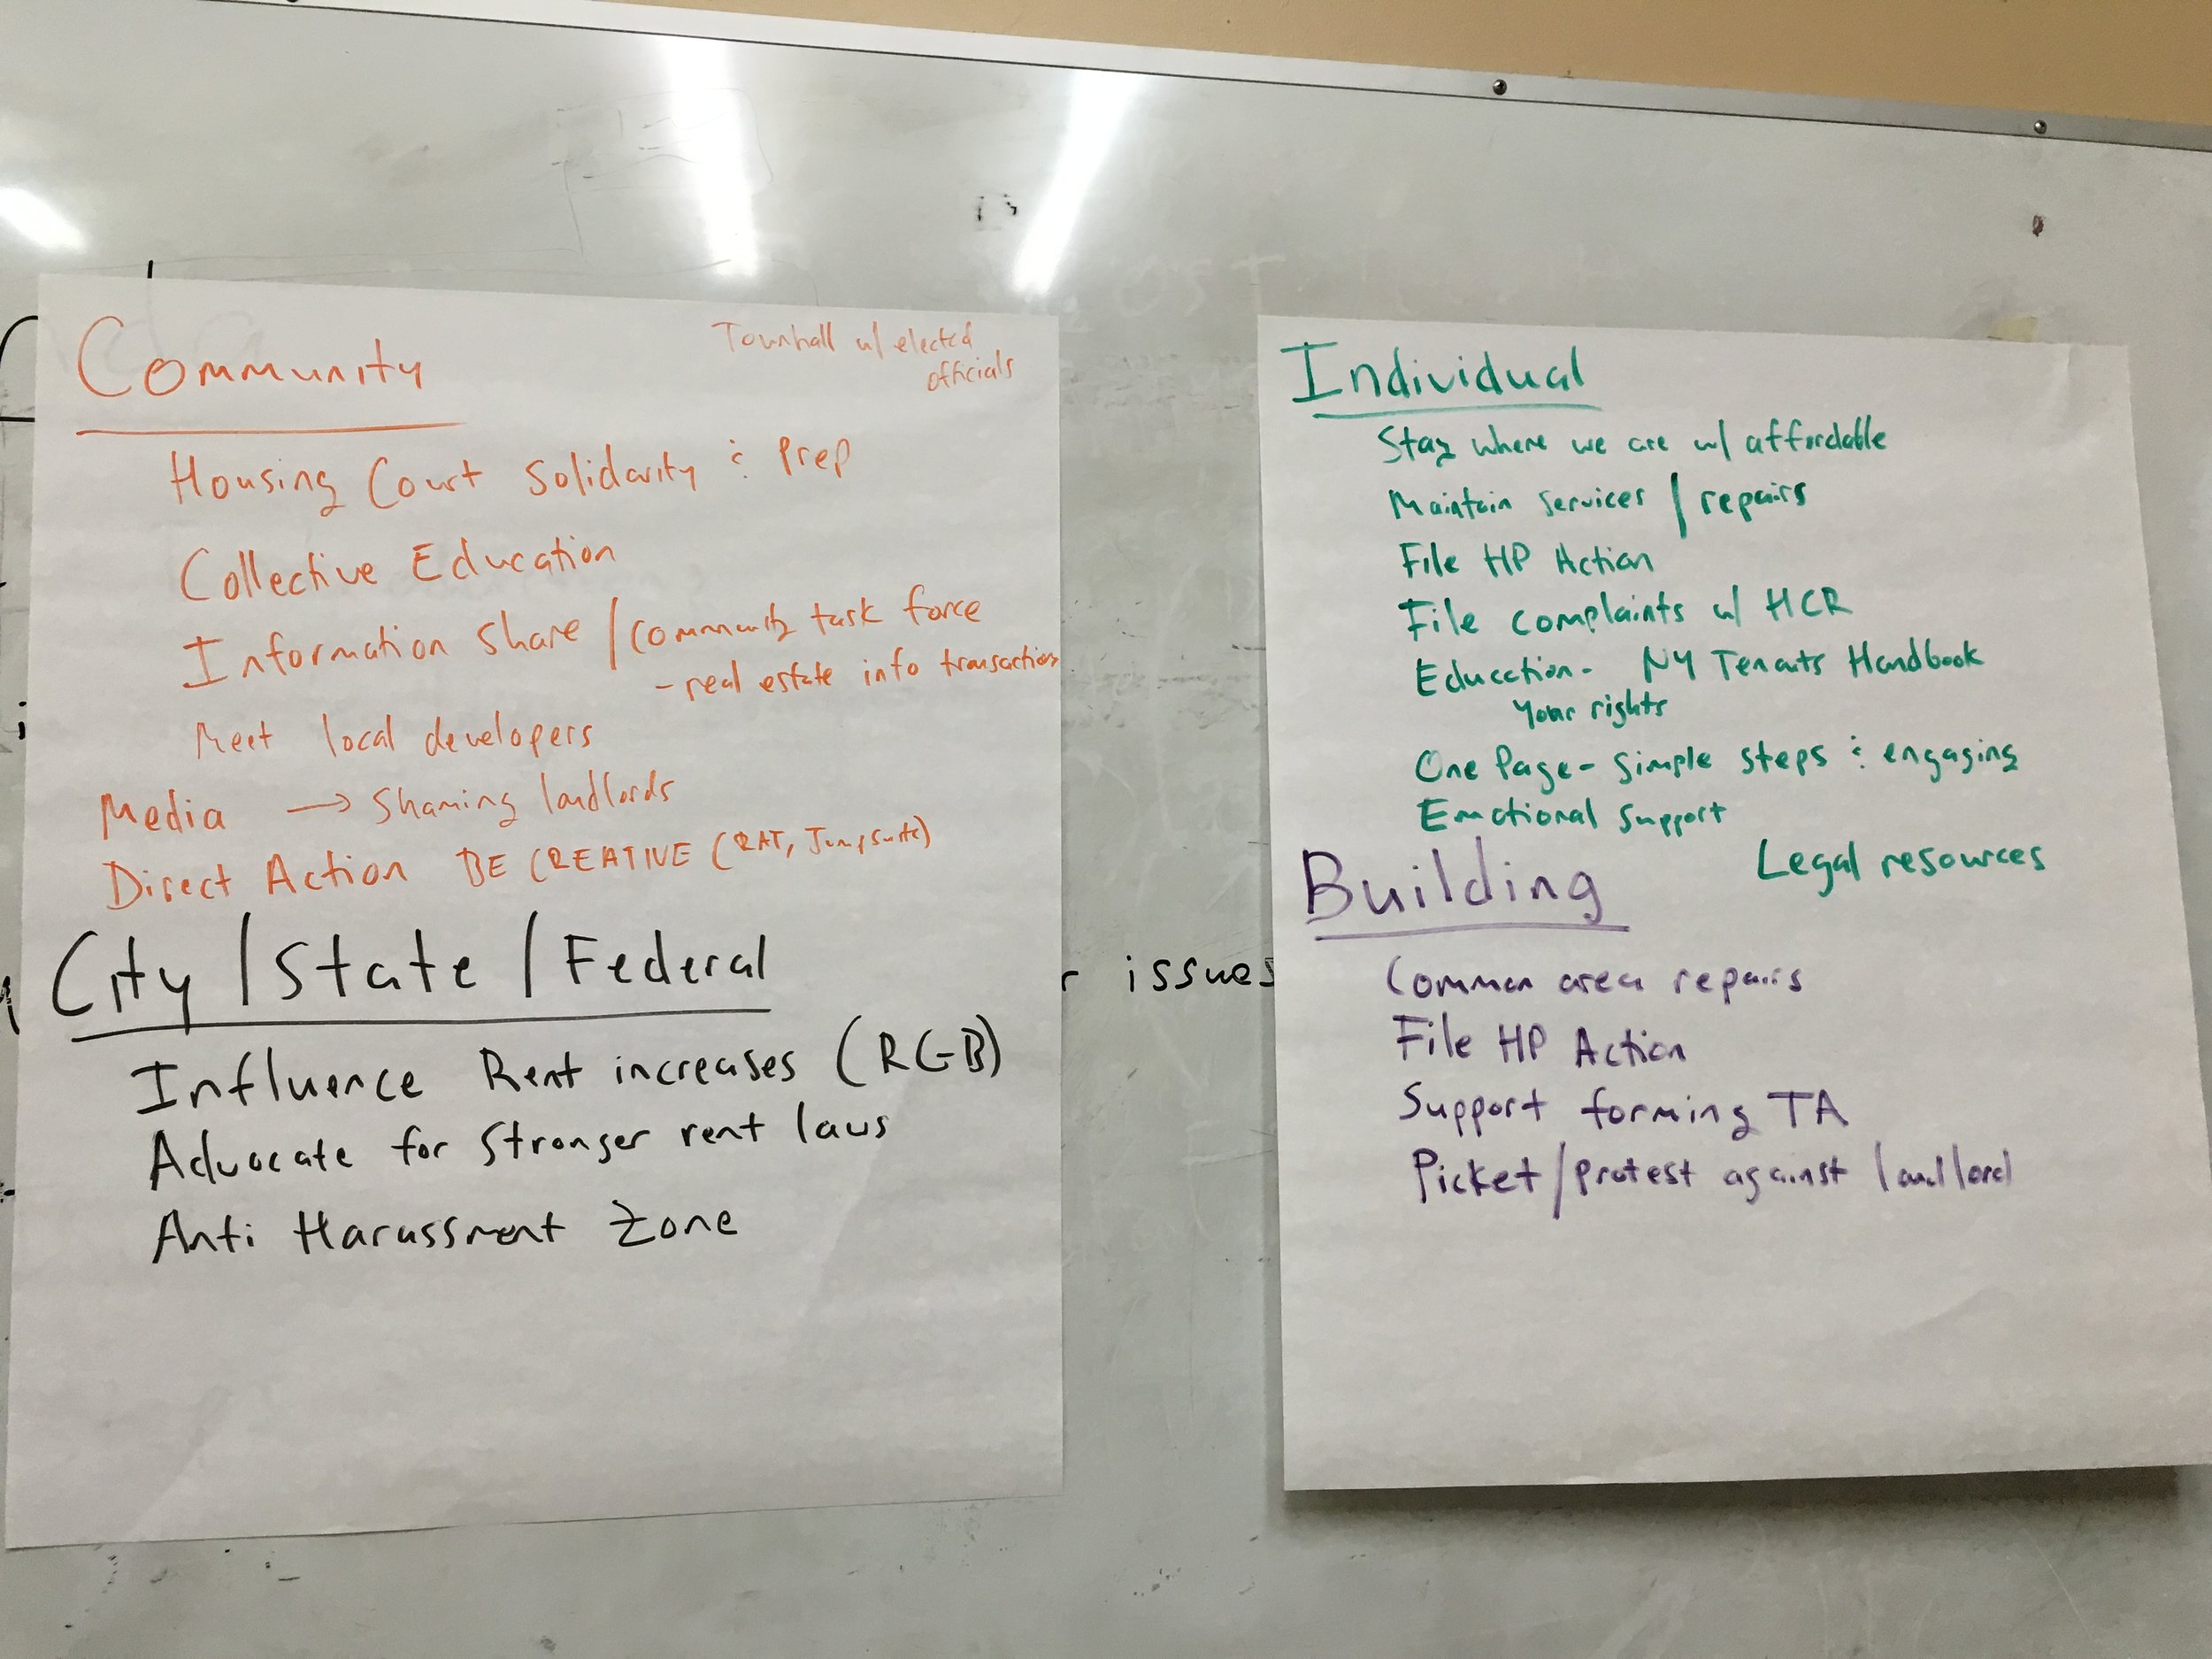 Community
Townhall w/ elected
officials
Housing Court Solidarity & Prep
Collective Education
Information Share / Community task force
- real estate info transactions
Meet local developers
Media → Shaming landlords
Direct Action BE CREATIVE (RAT, Jumpsuits)
City / State / Federal
Influence Rent increases (RGB)
Advocate for Stronger rent laws
Anti Harassment Zone
r issues
Individual
Stay where we are w/ affordable
Maintain Services / repairs
File HP Action
File complaints w/ HCR
Education - NY Tenants Handbook
Your rights
One Page - Simple steps & engaging
Emotional Support
Legal resources
Building
Common area repairs
File HP Action
Support forming TA
Picket / protest against landlord